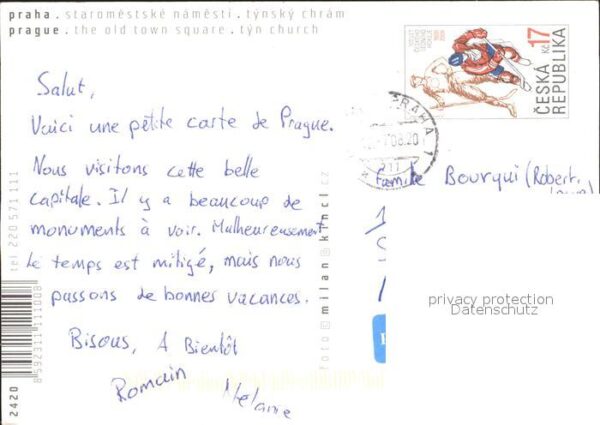 praha . staroměstské náměstí . týnský chrám
prague . the old town square . týn church
Salut,
Voici une petite carte de Prague.
Nous visitons cette belle
capitale. Il y a beaucoup de
monuments à voir. Malheureusement
le temps est mitigé, mais nous
passons de bonnes vacances.
Bisous, A Bientôt
Romain
Mélanie
17
Kč
ČESKÁ
REPUBLIKA
PRAHA 1
08.20
Famille Bourqui (Robert,
privacy protection
Datenschutz
foto © milan © kincl . cz
tel 220 571 111
8592311111008
2420